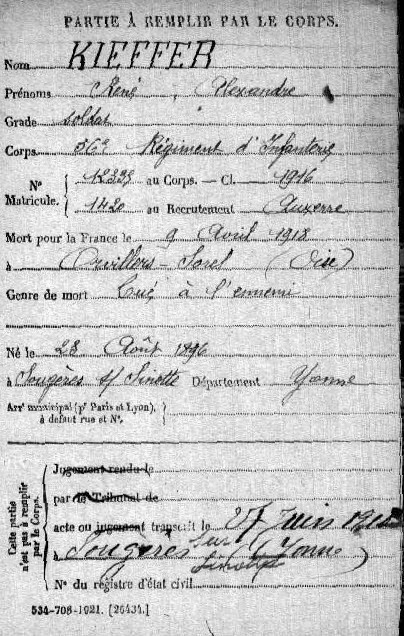 PARTIE À REMPLIR PAR LE CORPS.
Nom KIEFFER
Prénoms René, Alexandre
Grade soldat
Corps 56e Régiment d'Infanterie
N° Matricule. { au Corps. — Cl. 1916
1420 au Recrutement Auxerre
Mort pour la France le 9 Avril 1918
à Orvillers-Sorel (Oise)
Genre de mort Tué à l'ennemi
Né le 28 Août 1896
à Sougères s/ Sinotte Département Yonne
Arr' municipal (p' Paris et Lyon), à défaut rue et N°.
Cette partie n'est pas à remplir par le Corps.
Jugement rendu le
par le Tribunal de
acte ou jugement transcrit le 27 Juin
à Sougères sur Sinotte (Yonne)
N° du registre d'état civil
534-708-1921. [26434.]